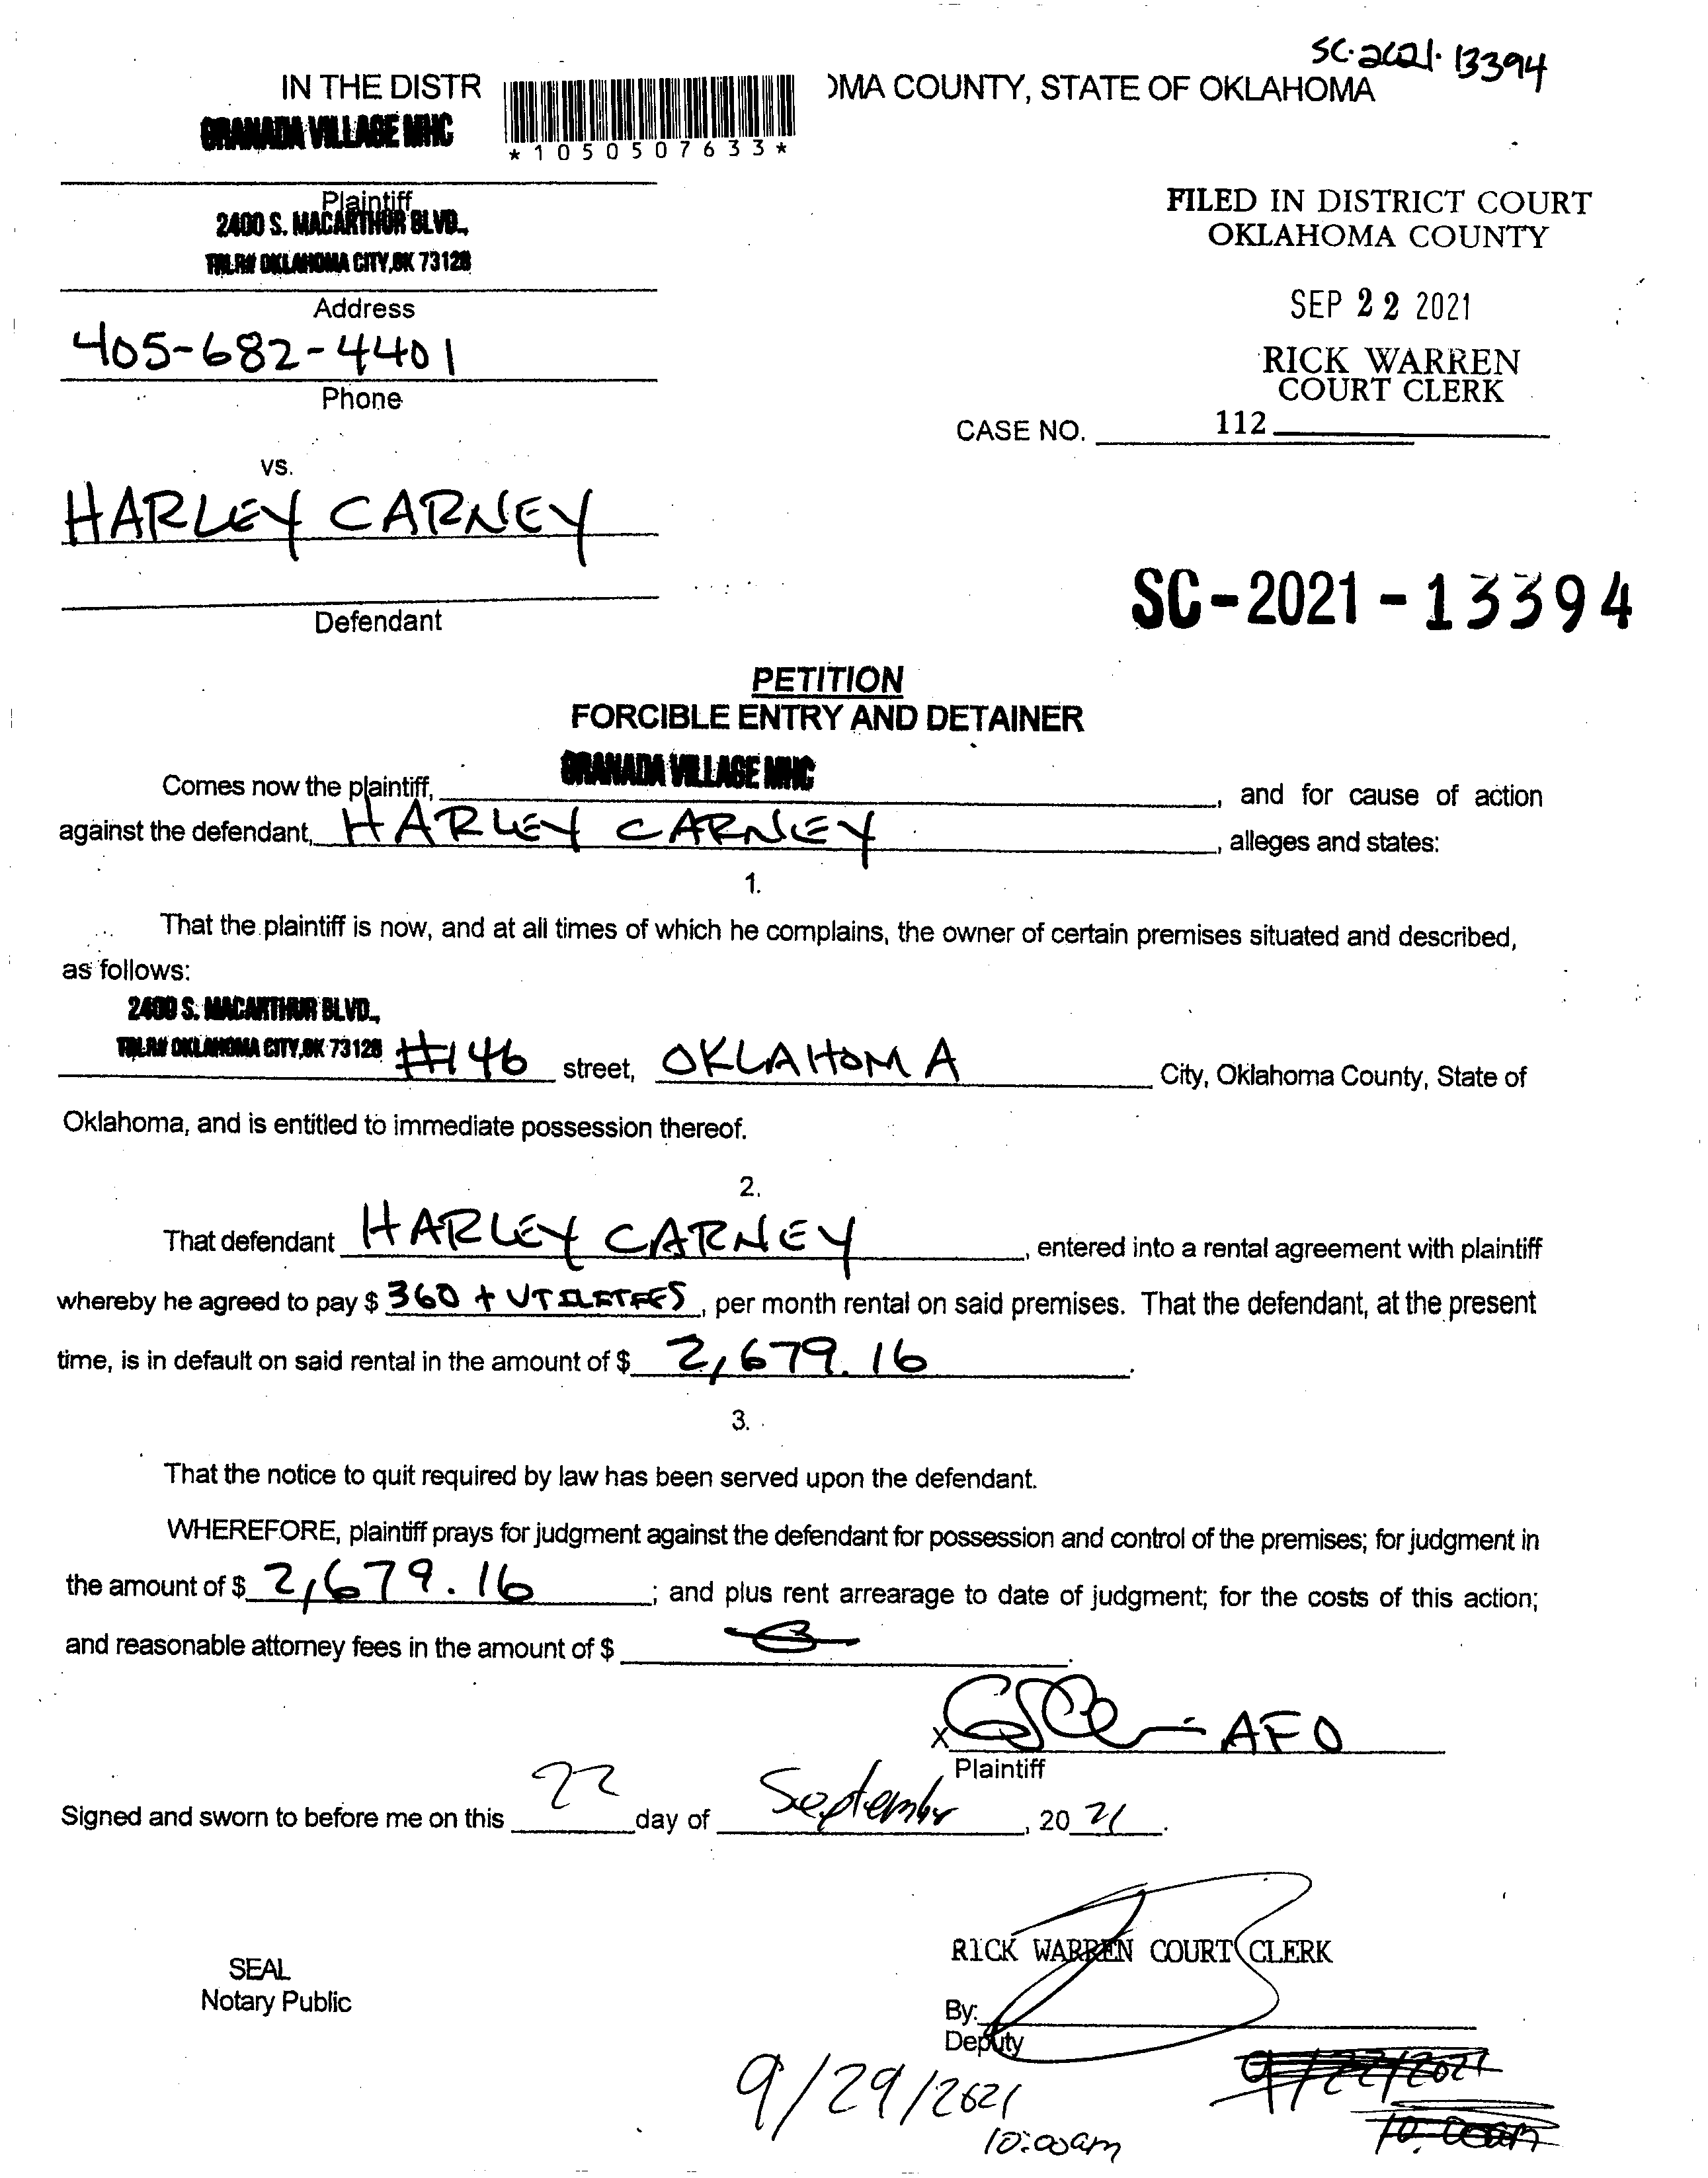 SC-2021-13394
IN THE DISTR OMA COUNTY, STATE OF OKLAHOMA
GRANADA VILLAGE MHC
*1050507633*
Plaintiff
2400 S. MACARTHUR BLVD.,
TRLR# OKLAHOMA CITY, OK 73128
Address
405-682-4401
Phone
FILED IN DISTRICT COURT
OKLAHOMA COUNTY
SEP 22 2021
RICK WARREN
COURT CLERK
CASE NO. 112
vs.
HARLEY CARNEY
Defendant
SC-2021-13394
PETITION
FORCIBLE ENTRY AND DETAINER
Comes now the plaintiff, GRANADA VILLAGE MHC, and for cause of action
against the defendant, HARLEY CARNEY, alleges and states:
1.
That the plaintiff is now, and at all times of which he complains, the owner of certain premises situated and described,
as follows:
2400 S. MACARTHUR BLVD.,
TRLR# OKLAHOMA CITY, OK 73128 #146 street, OKLAHOMA City, Oklahoma County, State of
Oklahoma, and is entitled to immediate possession thereof.
2.
That defendant HARLEY CARNEY, entered into a rental agreement with plaintiff
whereby he agreed to pay $ 360 + UTILITIES, per month rental on said premises. That the defendant, at the present
time, is in default on said rental in the amount of $ 2,679.16.
3.
That the notice to quit required by law has been served upon the defendant.
WHEREFORE, plaintiff prays for judgment against the defendant for possession and control of the premises; for judgment in
the amount of $ 2,679.16; and plus rent arrearage to date of judgment; for the costs of this action;
and reasonable attorney fees in the amount of $
X AFO
Plaintiff
Signed and sworn to before me on this 22 day of September, 2021.
RICK WARREN COURT CLERK
SEAL
Notary Public
By:
Deputy
9/22/2021
10:00am
9/29/2021
10:00am